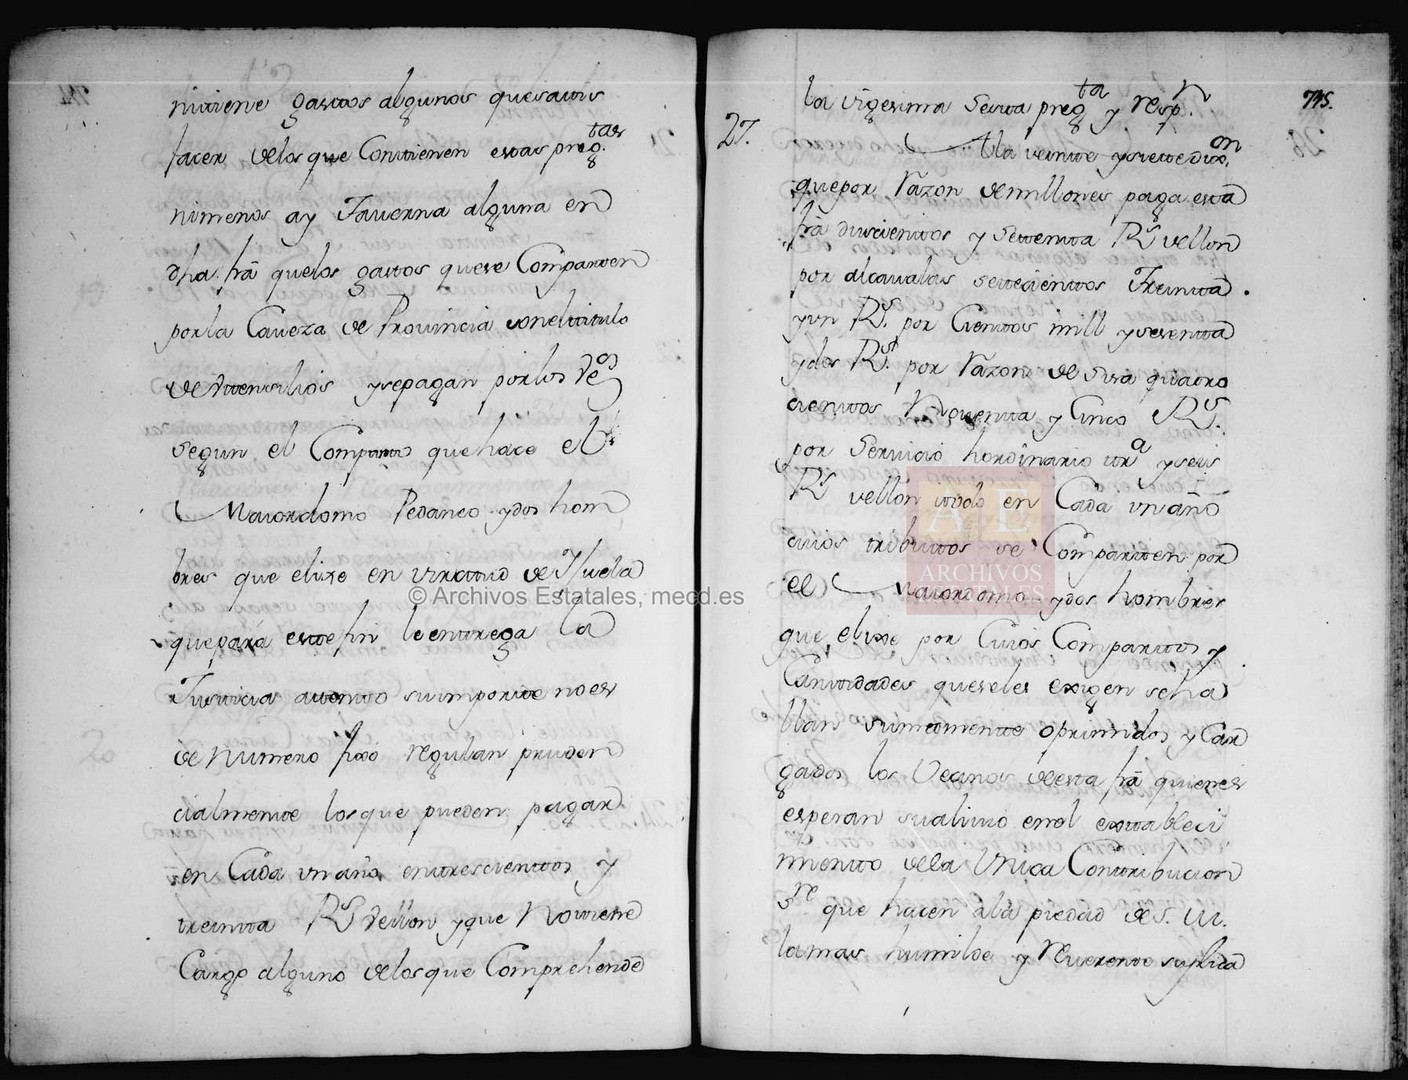 nitiene gasttos algunos que sattis
facer de los que Conttienen estas preg.tas
ni menos ay Taverna alguna en
dha, frã que los gastos que se Comparten
por la Caveza de Provincia con el titulo
de Uttensilios y se pagan por los Veos
segun el Compartto que hace el
Maiordomo Pedaneo y dos hom
bres que elixe en virttud de Yjuela
que para estte fin le enttrega la
Justicia attentto su importte no es
de numero fixo regulan pruden
cialmentte los que pueden pagar
en Cada un año, en trescienttos y
treintta Rs Vellon y que no ttiene
Cargo alguno de los que Comprehende
745.
la vigesima Sesta preg.ta y resp.n
27. A la veintte y siette dixe.on
que por razon de millones paga esta
frã duscienttos y Settentta Rs vellon
por alcavalas settecienttos Treintta
y un Rs. por Cienttos mill y sesentta
y dos Rs. por razon de Sisa quatro
cienttos Noventta y Cinco Rs.
por Servicio hordinario ttra y seis
Rs vellon ttodo en Cada un año
cuios tributtos se Compartten por
el Maiordomo y dos hombres
que elixe por Cuios Comparttos y
Canttidades que se les exigen se ha
llan sumamentte oprimidos y Car
gados los Vecinos de esta frã quienes
esperan su alivio en el esttableci
mientto de la Unica Conttribucion
sre que hacen a la piedad de S. M.
la mas humilde y reverente suplica
© Archivos Estatales, mecd.es
AE
ARCHIVOS
ESTATALES